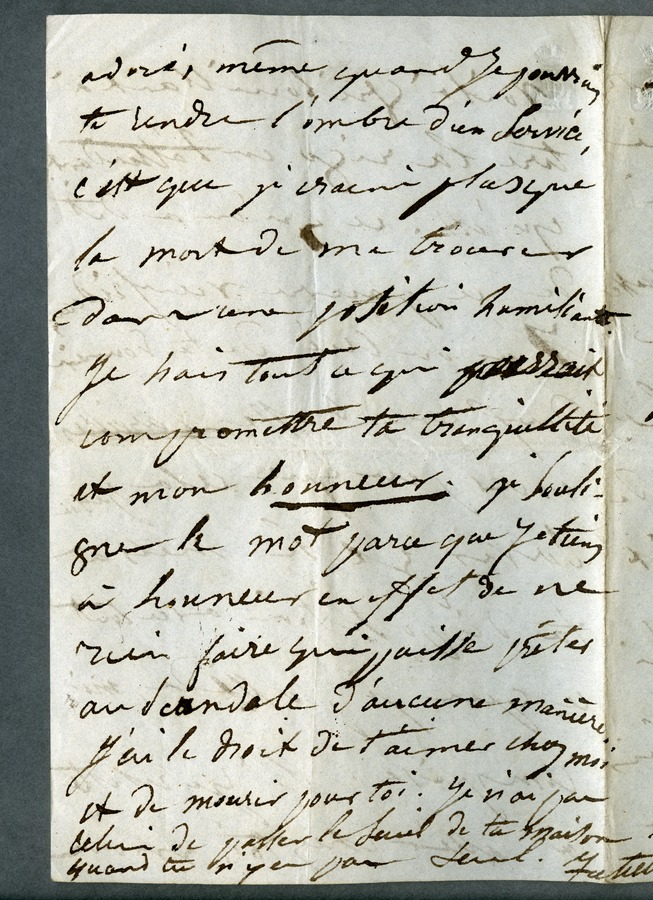 adorés, même quand je pourrais
te rendre l'ombre d'un service
c'est que je crains plus que
la mort de me trouver
dans une position humiliante.
Je hais tout ce qui pourrait
compromettre ta tranquillité
et mon honneur. je souli-
gne le mot parce que je tiens
à honneur en effet de ne
rien faire qui puisse prêter
au scandale d'aucune manière
J'ai le droit de t'aimer chez moi
et de mourir pour toi. Je n'ai pas
celui de passer le seuil de ta maison
quand tu n'y es pas seul.